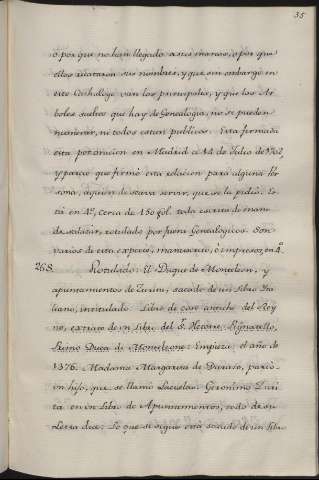 35
ó por que no han llegado a sus manos, o por que
ellos usataron sus nombres, y que sin embargo en
este Cathalogo van los principales, y que los Ar
boles sueltos que hay de Genealogia, no se pueden
numerar, ni todos estan publicos. Esta firmada
esta por oracion en Madrid á 14 de Julio de 1702,
y parece que firmó esta relacion para alguna Per
sona, á quien deseava servir, que se la pidió. Es
tá en 4º, cerca de 150 fol. toda escrita de mano
de Salazar, rotulado por fuera Genealogicos. Son
varios de esta especie, manuscritos, ó impresos, en 4º.
268. Rotulado: El Duque de Monteleon, y
apuntamientos de Zurita, sacado de un Libro Ita
liano, intitulado: Libro de cose antiche del Rey
no, extrato de un Libro del Sr. Hettore Pignatello,
Primo Duca di Monteleone: Empieza: el año de
1376. Madama Margarita de Durazo, pario
un hijo, que se llamó Lacuslau. Geronimo Zuri
ta en un Libro de Apuntamientos, todo de su
Letra dice: Lo que se sigue está sacado de un Libro